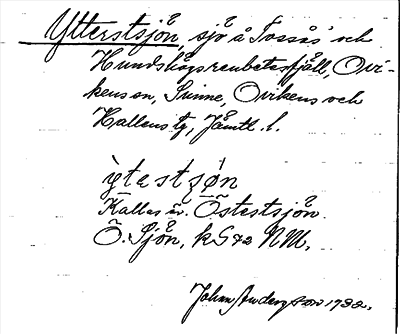 Ytterstsjön, sjö å Tossås och
Hundshögs renbetesfjäll, Ovi-
kens sn, Sunne, Ovikens och
Hallens tg, Jämtl. l.
Kallas äv. Östestsjön.
Ö. Sjön, k 592 NM.
John Anderson 1932.